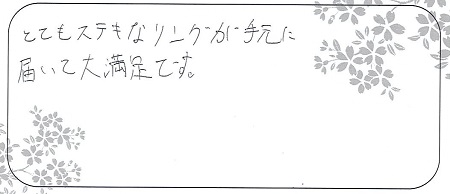 とてもステキなリングが手元に
届いて大満足です。